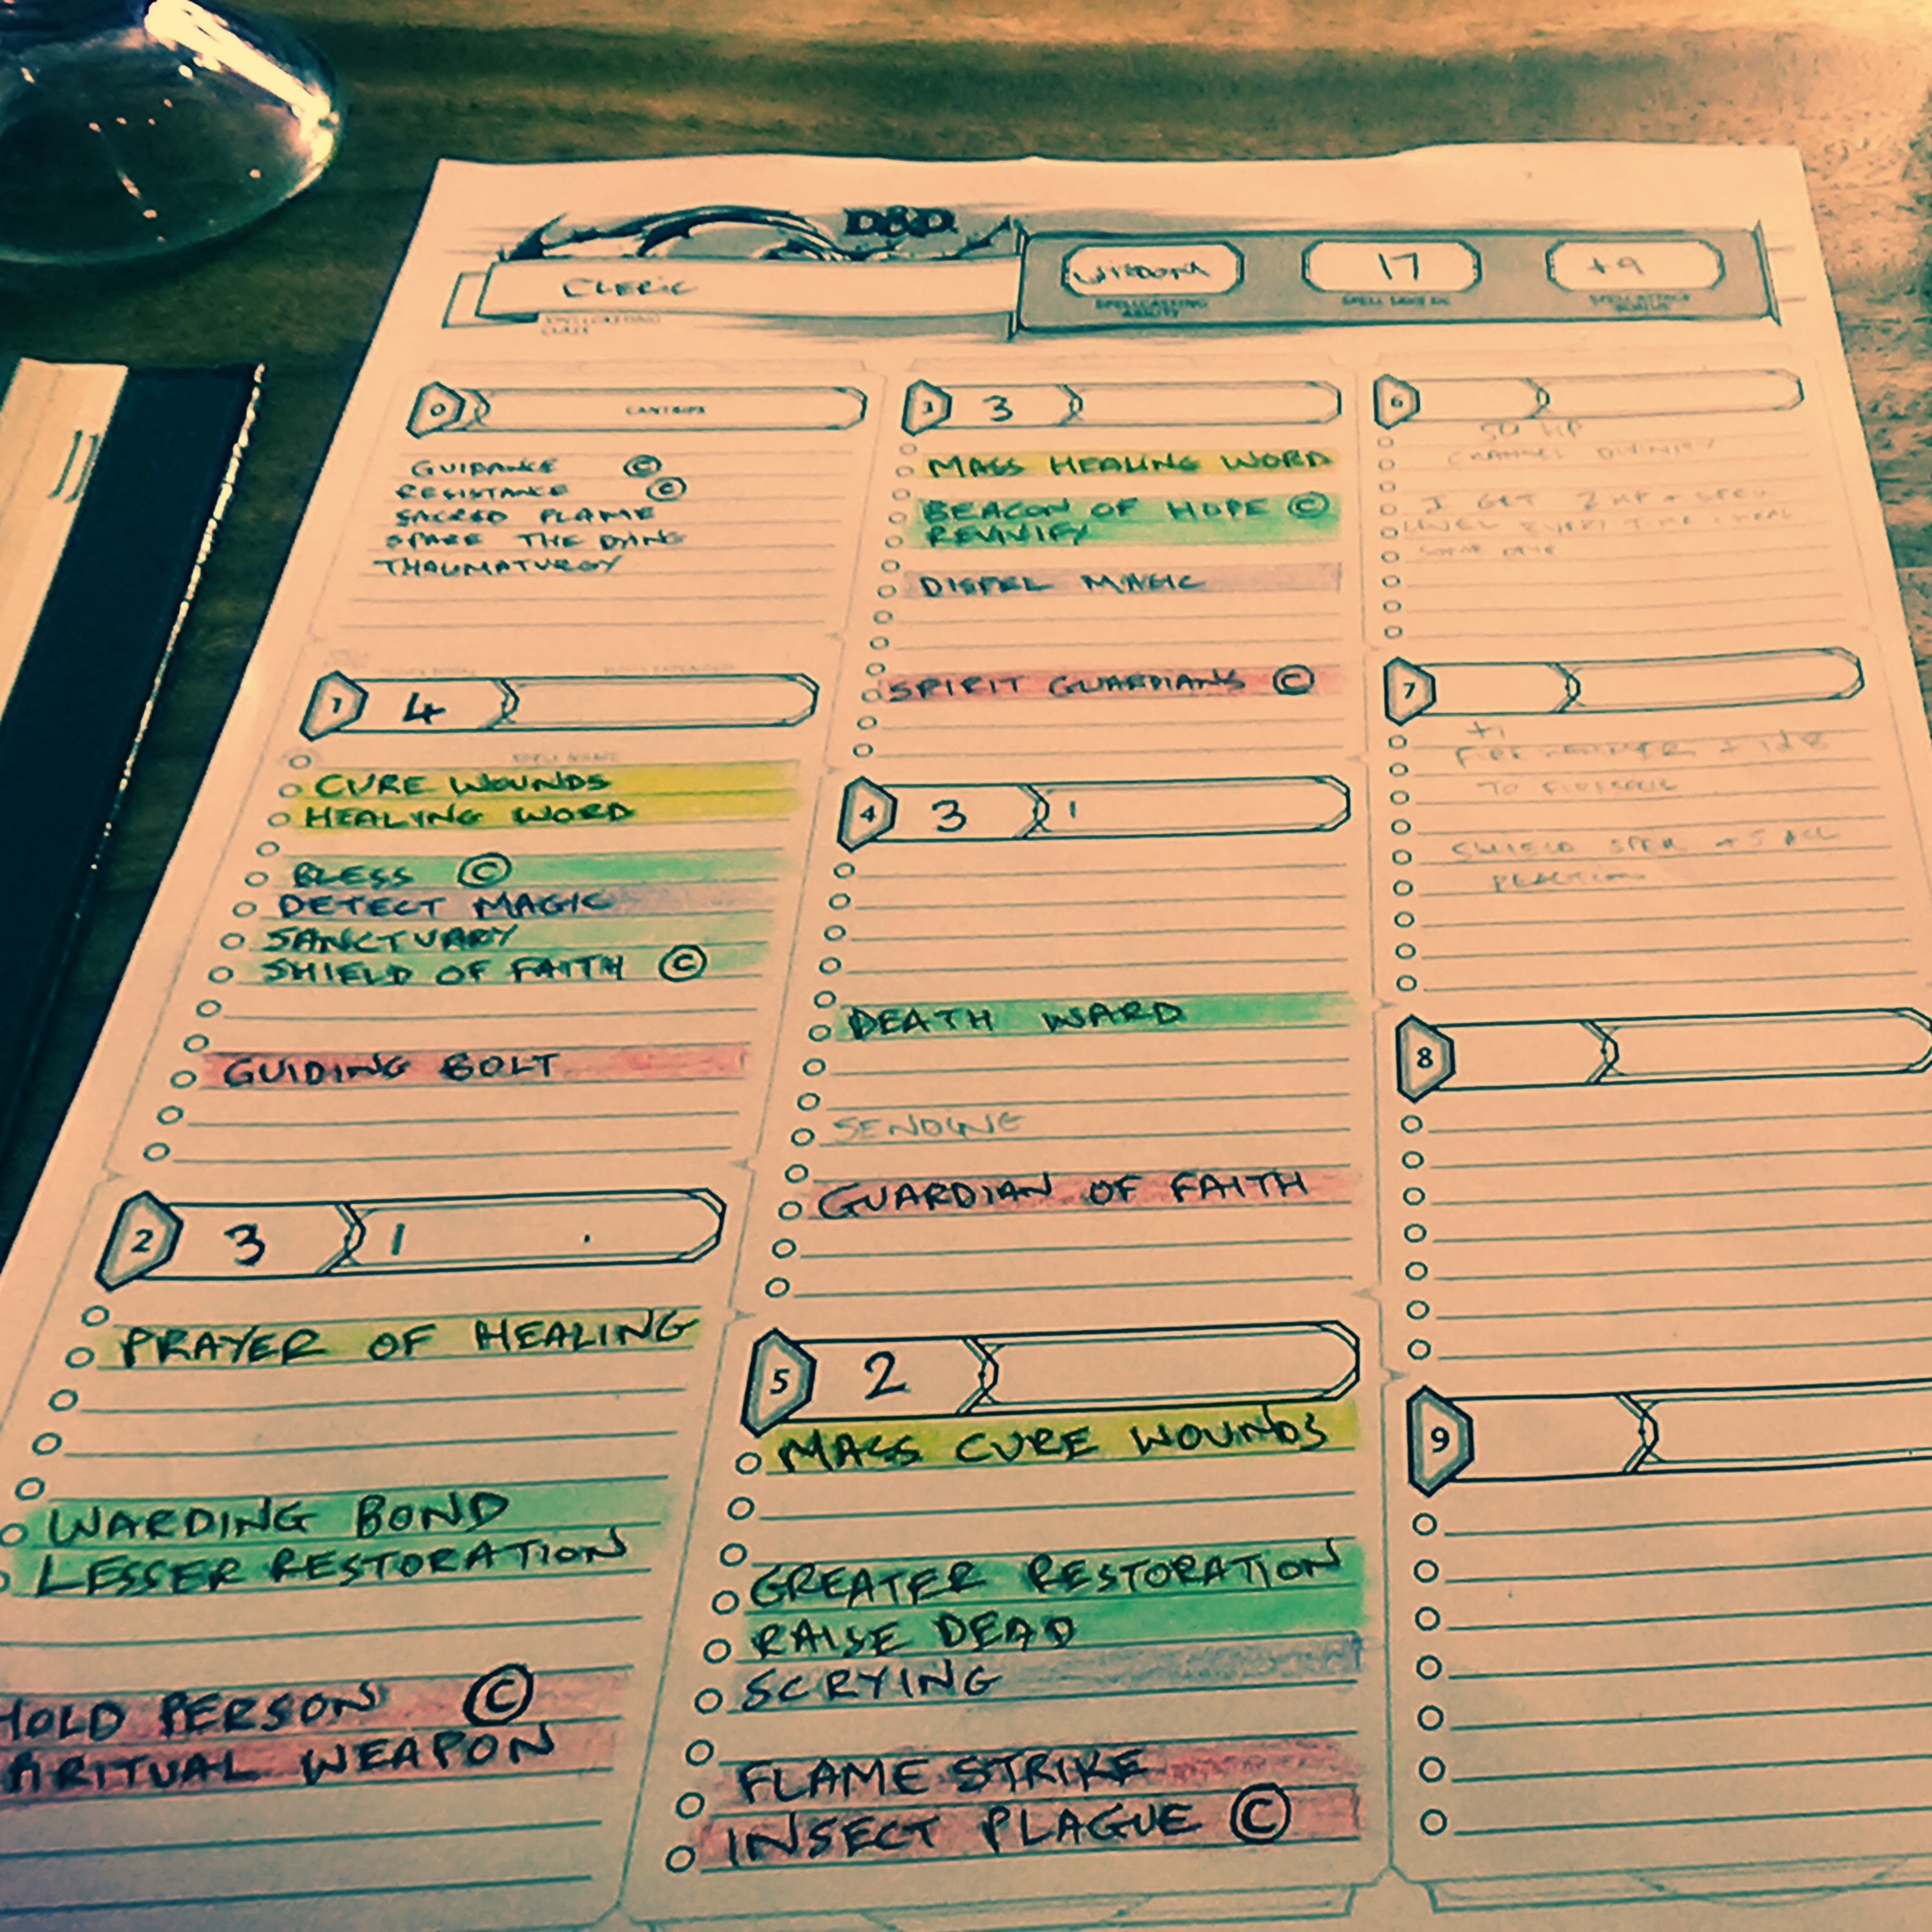 D&D
CLERIC
SPELLCASTING
CLASS
Wisdom
17
+9
SPELLCASTING
ABILITY
SPELL SAVE DC
SPELL ATTACK
BONUS
0
CANTRIPS
GUIDANCE ©
RESISTANCE ©
SACRED FLAME
SPARE THE DYING
THAUMATURGY
1 4
SPELL NAME
CURE WOUNDS
HEALING WORD
BLESS ©
DETECT MAGIC
SANCTUARY
SHIELD OF FAITH ©
GUIDING BOLT
2 3 1
PRAYER OF HEALING
WARDING BOND
LESSER RESTORATION
HOLD PERSON ©
PIRITUAL WEAPON
3 3
MASS HEALING WORD
BEACON OF HOPE ©
REVIVIFY
DISPEL MAGIC
SPIRIT GUARDIANS ©
4 3 1
DEATH WARD
SENDING
GUARDIAN OF FAITH
5 2
MASS CURE WOUNDS
GREATER RESTORATION
RAISE DEAD
SCRYING
FLAME STRIKE
INSECT PLAGUE ©
6
50 HP
CHANNEL DIVINITY
I GET 2 HP + SPELL
LEVEL EVERY TIME I HEAL
7
+1
+ 1d8
TO
SHIELD SPELL +5 AC
REACTION
8
9